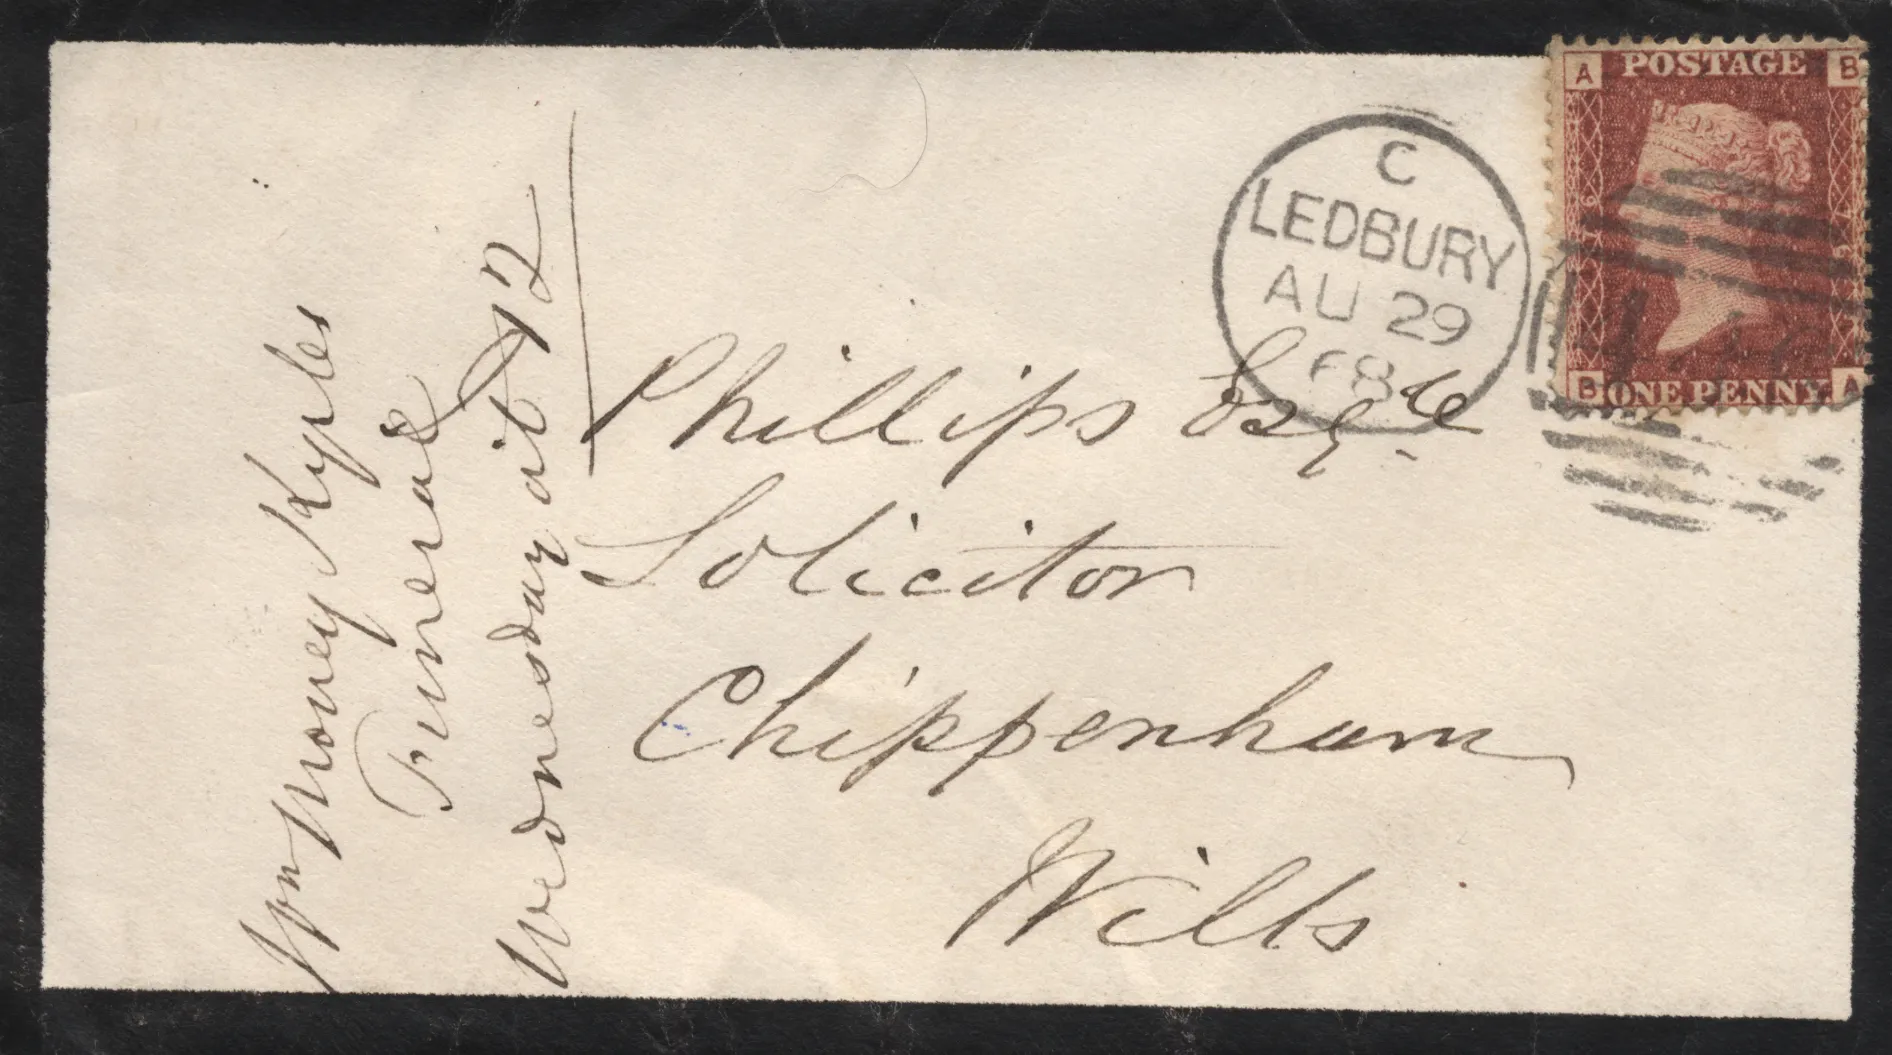 A POSTAGE B
B ONE PENNY A
C
LEDBURY
AU 29
68
Phillips Esqre
Solicitor
Chippenham
Wilts
Wm Money Kyrles
Funeral
Wednesday at 12